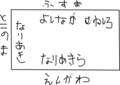 ふすま
よしなが むねひろ
なりあきら
なりあき
とこのま
えんがわ